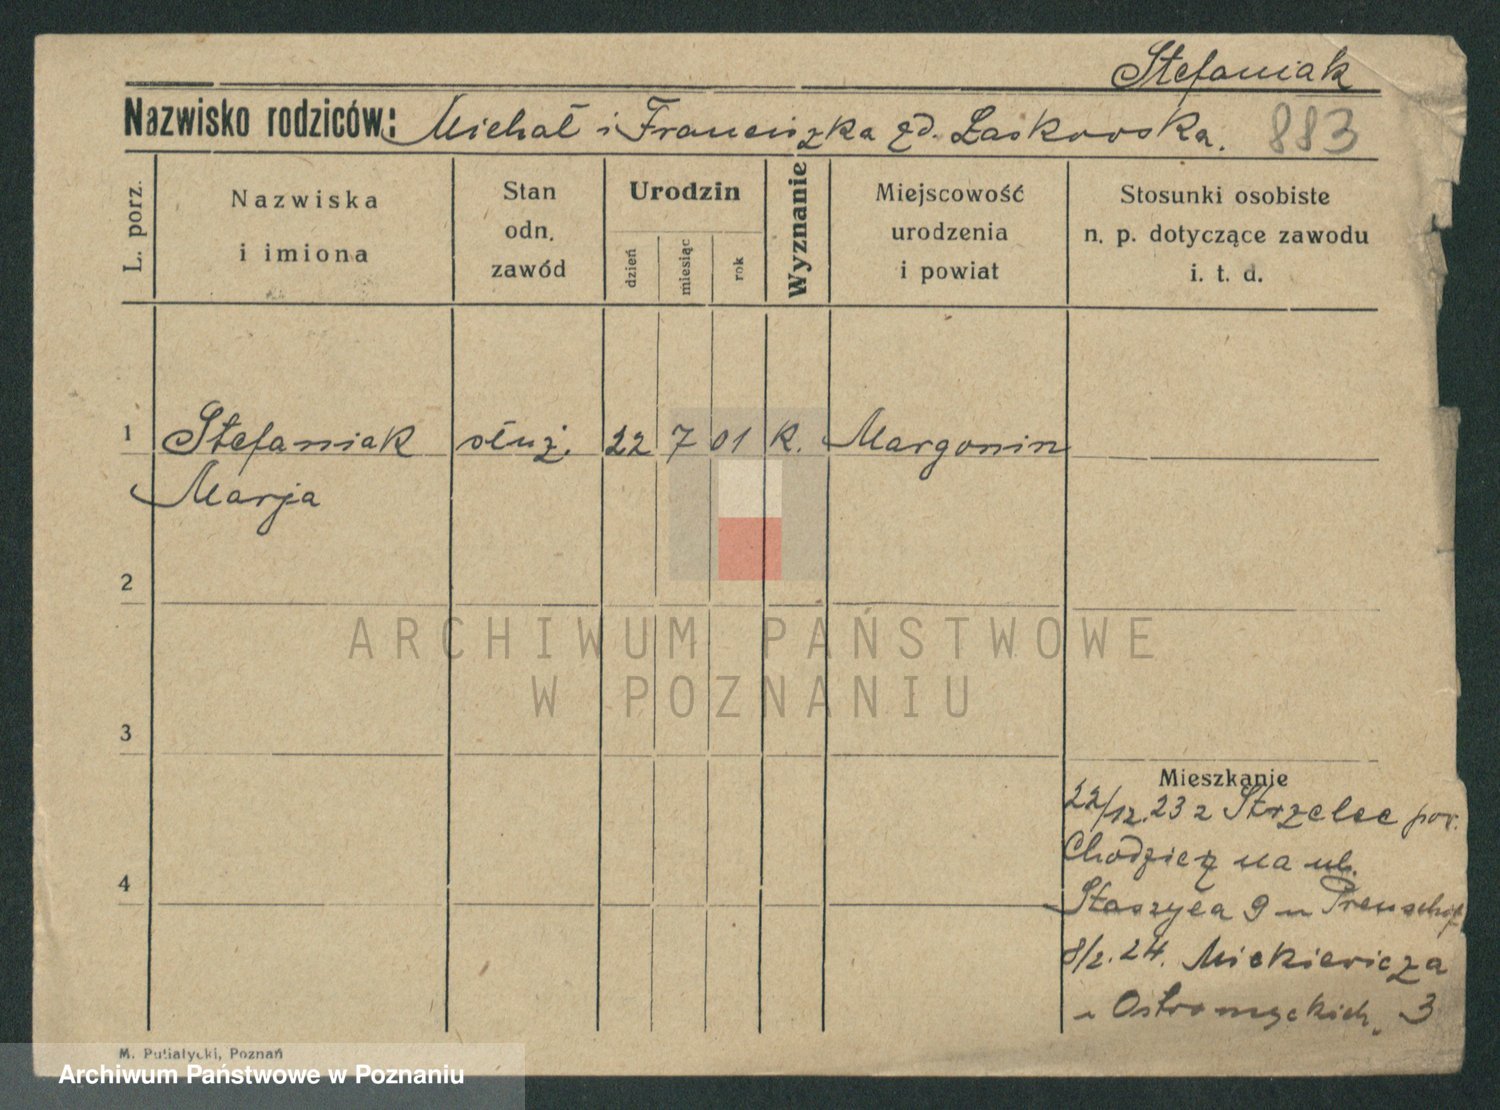 Stefaniak
Nazwisko rodziców: Michał i Franciszka zd. Laskowska.
883
L. porz.
Nazwiska
i imiona
Stan
odn.
zawód
Urodzin
dzień
miesiąc
rok
Wyznanie
Miejscowość
urodzenia
i powiat
Stosunki osobiste
n. p. dotyczące zawodu
i. t. d.
1 Stefaniak służ. 22 7 01 k. Margonin
Marja
2
ARCHIWUM PAŃSTWOWE
W POZNANIU
3
Mieszkanie
22/12.23 z Strzelec pow.
Chodzież na ul.
4
Staszyca 9 u
8/2.24. Mickiewicza
u Ostromęckich. 3
M. Putiatycki, Poznań
Archiwum Państwowe w Poznaniu